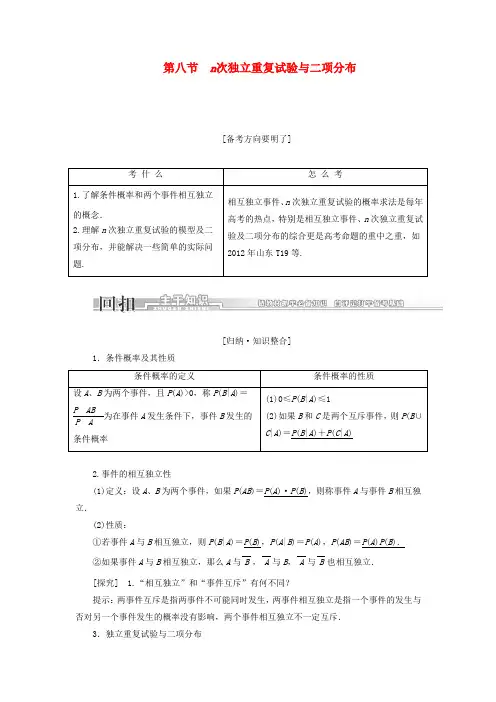 第八节 n次独立重复试验与二项分布
[备考方向要明了]
考 什 么
怎 么 考
1.了解条件概率和两个事件相互独立
的概念.
2.理解n次独立重复试验的模型及二
项分布,并能解决一些简单的实际问
题.
相互独立事件、n次独立重复试验的概率求法是每年
高考的热点,特别是相互独立事件、n次独立重复试
验及二项分布的综合更是高考命题的重中之重,如
2012年山东T19等.
回扣 主干知识
[归纳·知识整合]
1.条件概率及其性质
条件概率的定义
条件概率的性质
设A、B为两个事件,且P(A)>0,称P(B|A)=
P AB
P A
为在事件A发生条件下,事件B发生的
条件概率
(1)0≤P(B|A)≤1
(2)如果B和C是两个互斥事件,则P(B∪
C|A)=P(B|A)+P(C|A)
2.事件的相互独立性
(1)定义:设A、B为两个事件,如果P(AB)=P(A)·P(B),则称事件A与事件B相互独
立.
(2)性质:
①若事件A与B相互独立,则P(B|A)=P(B),P(A|B)=P(A),P(AB)=P(A)P(B).
②如果事件A与B相互独立,那么A与B̅,A̅与B,A̅与B̅也相互独立.
[探究] 1.“相互独立”和“事件互斥”有何不同?
提示:两事件互斥是指两事件不可能同时发生,两事件相互独立是指一个事件的发生与
否对另一个事件发生的概率没有影响,两个事件相互独立不一定互斥.
3.独立重复试验与二项分布